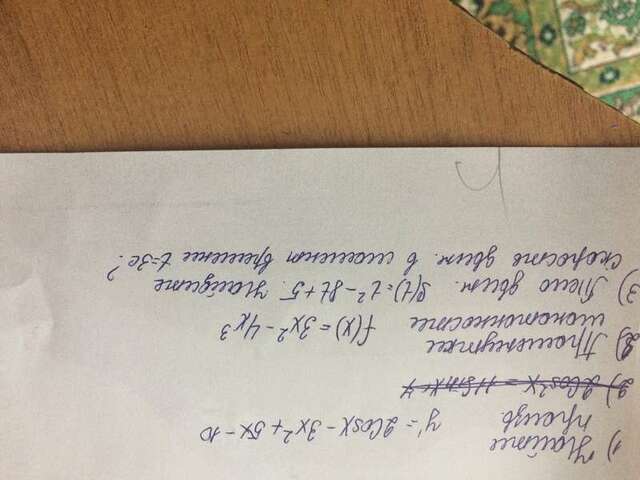 1) Найти y' = 2Cosx - 3x² + 5x - 10
произв.
2) 2Cos²x = 11Sinx - 7
2) Промежутки
монотонности f(x) = 3x² - 4x3
3) Тело движ. S(t) = t² - 8t + 5. Найдите
скорость движ. в момент времени t=3c.?